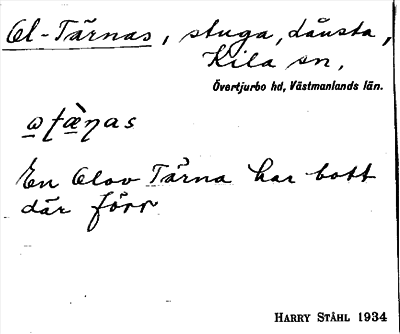 Ol-Tärnas, stuga, Låusta,
Kila sn,
Övertjurbo hd, Västmanlands län.
En Olov Tärna har bott
där förr
HARRY STÅHL 1934